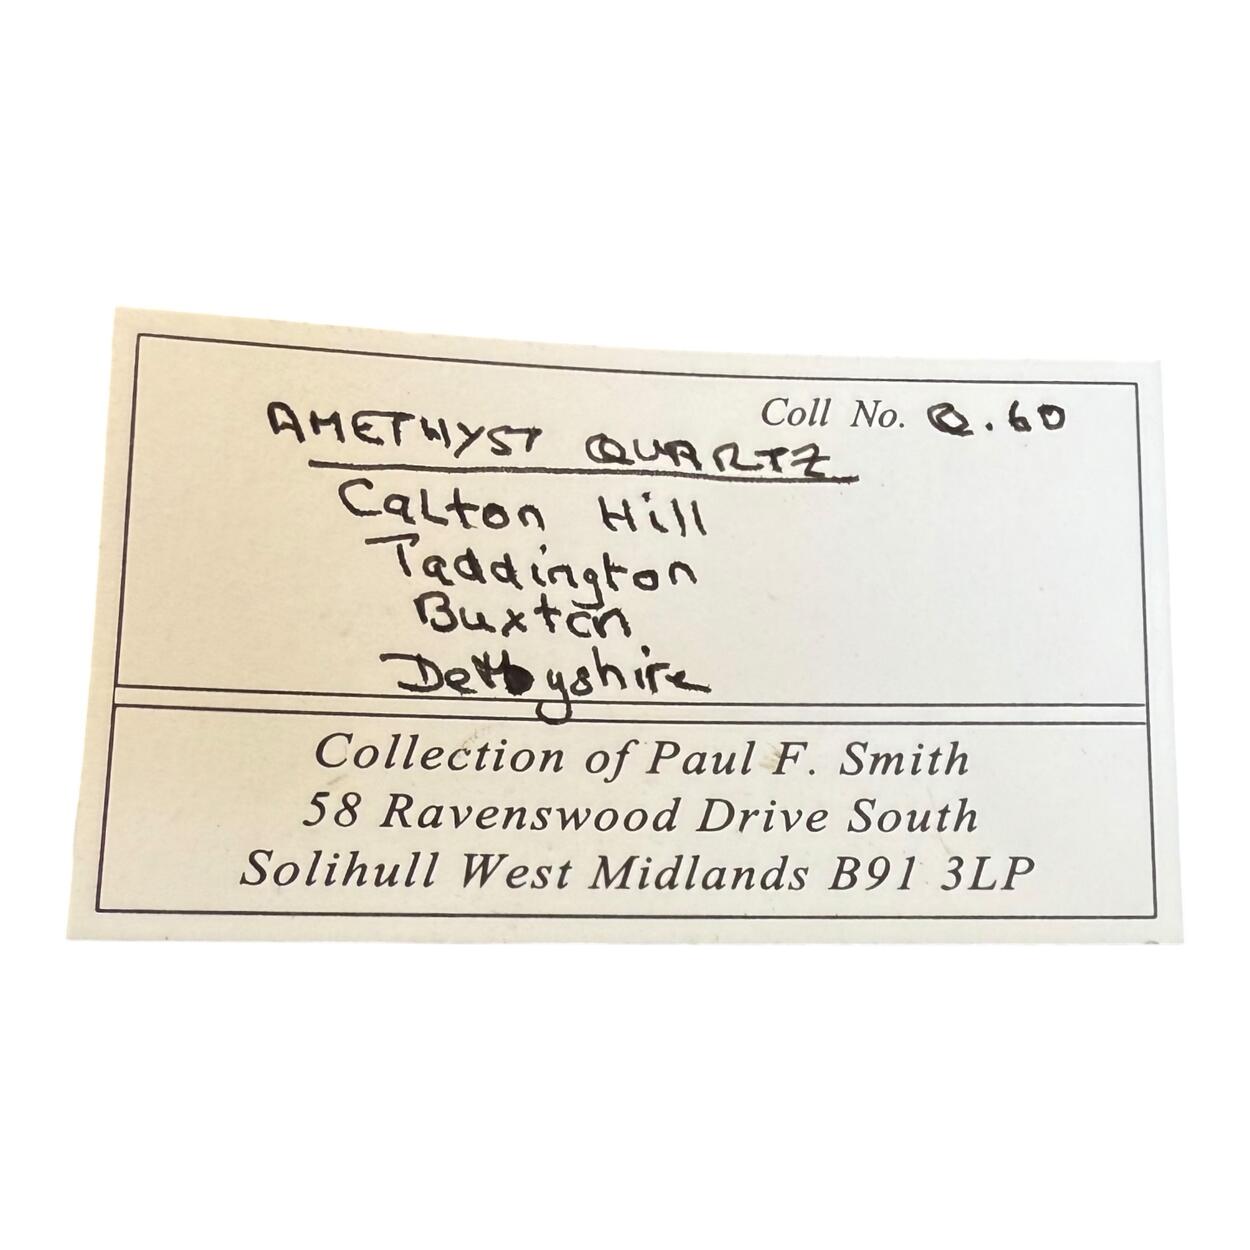 Coll No. Q.60
AMETHYST QUARTZ
Calton Hill
Taddington
Buxton
Derbyshire
Collection of Paul F. Smith
58 Ravenswood Drive South
Solihull West Midlands B91 3LP